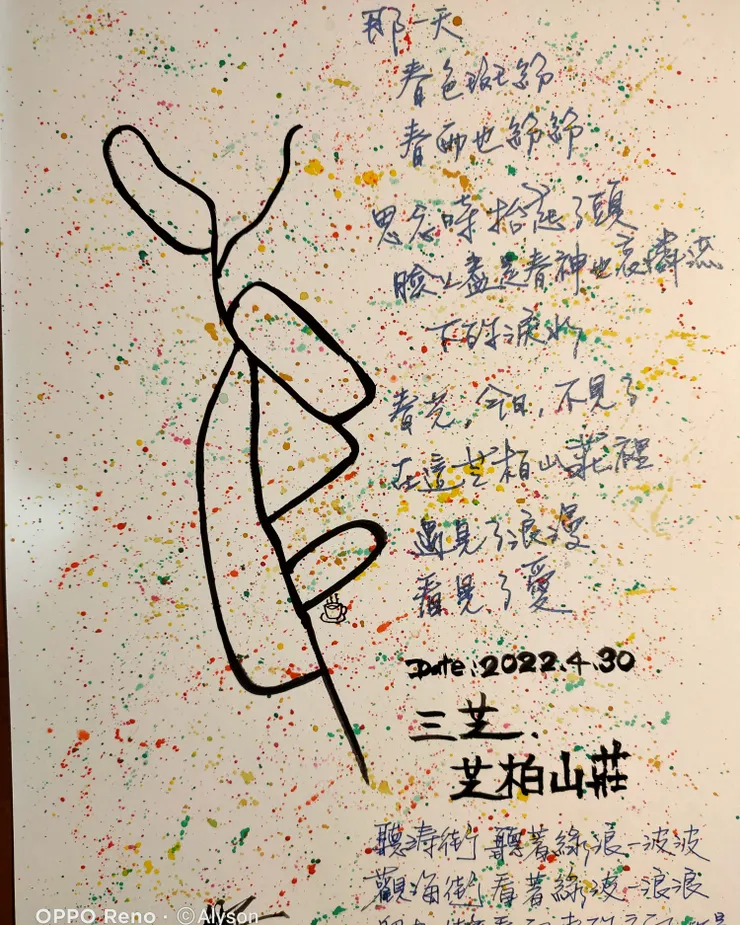 那一天
春色斑紛
春雨也紛紛
思念時抬起了頭
臉上盡是春神也哀憐流
下的淚水
春光，今日，不見了
在這芝柏山莊裡
遇見了浪漫
看見了愛
Date:2022.4.30
三芝、
芝柏山莊
聽濤街聽著綠浪一波波
觀海街看著綠波一浪浪
OPPO Reno · ©Alyson